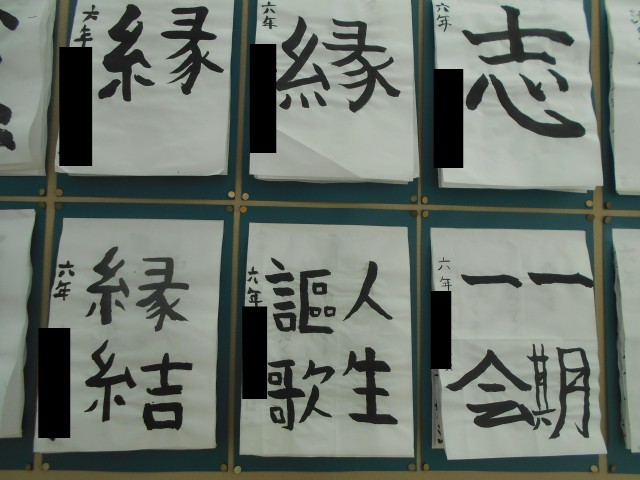 縁
六年
縁
六年
志
六年
縁結
六年
人生
謳歌
六年
一期
一会
六年